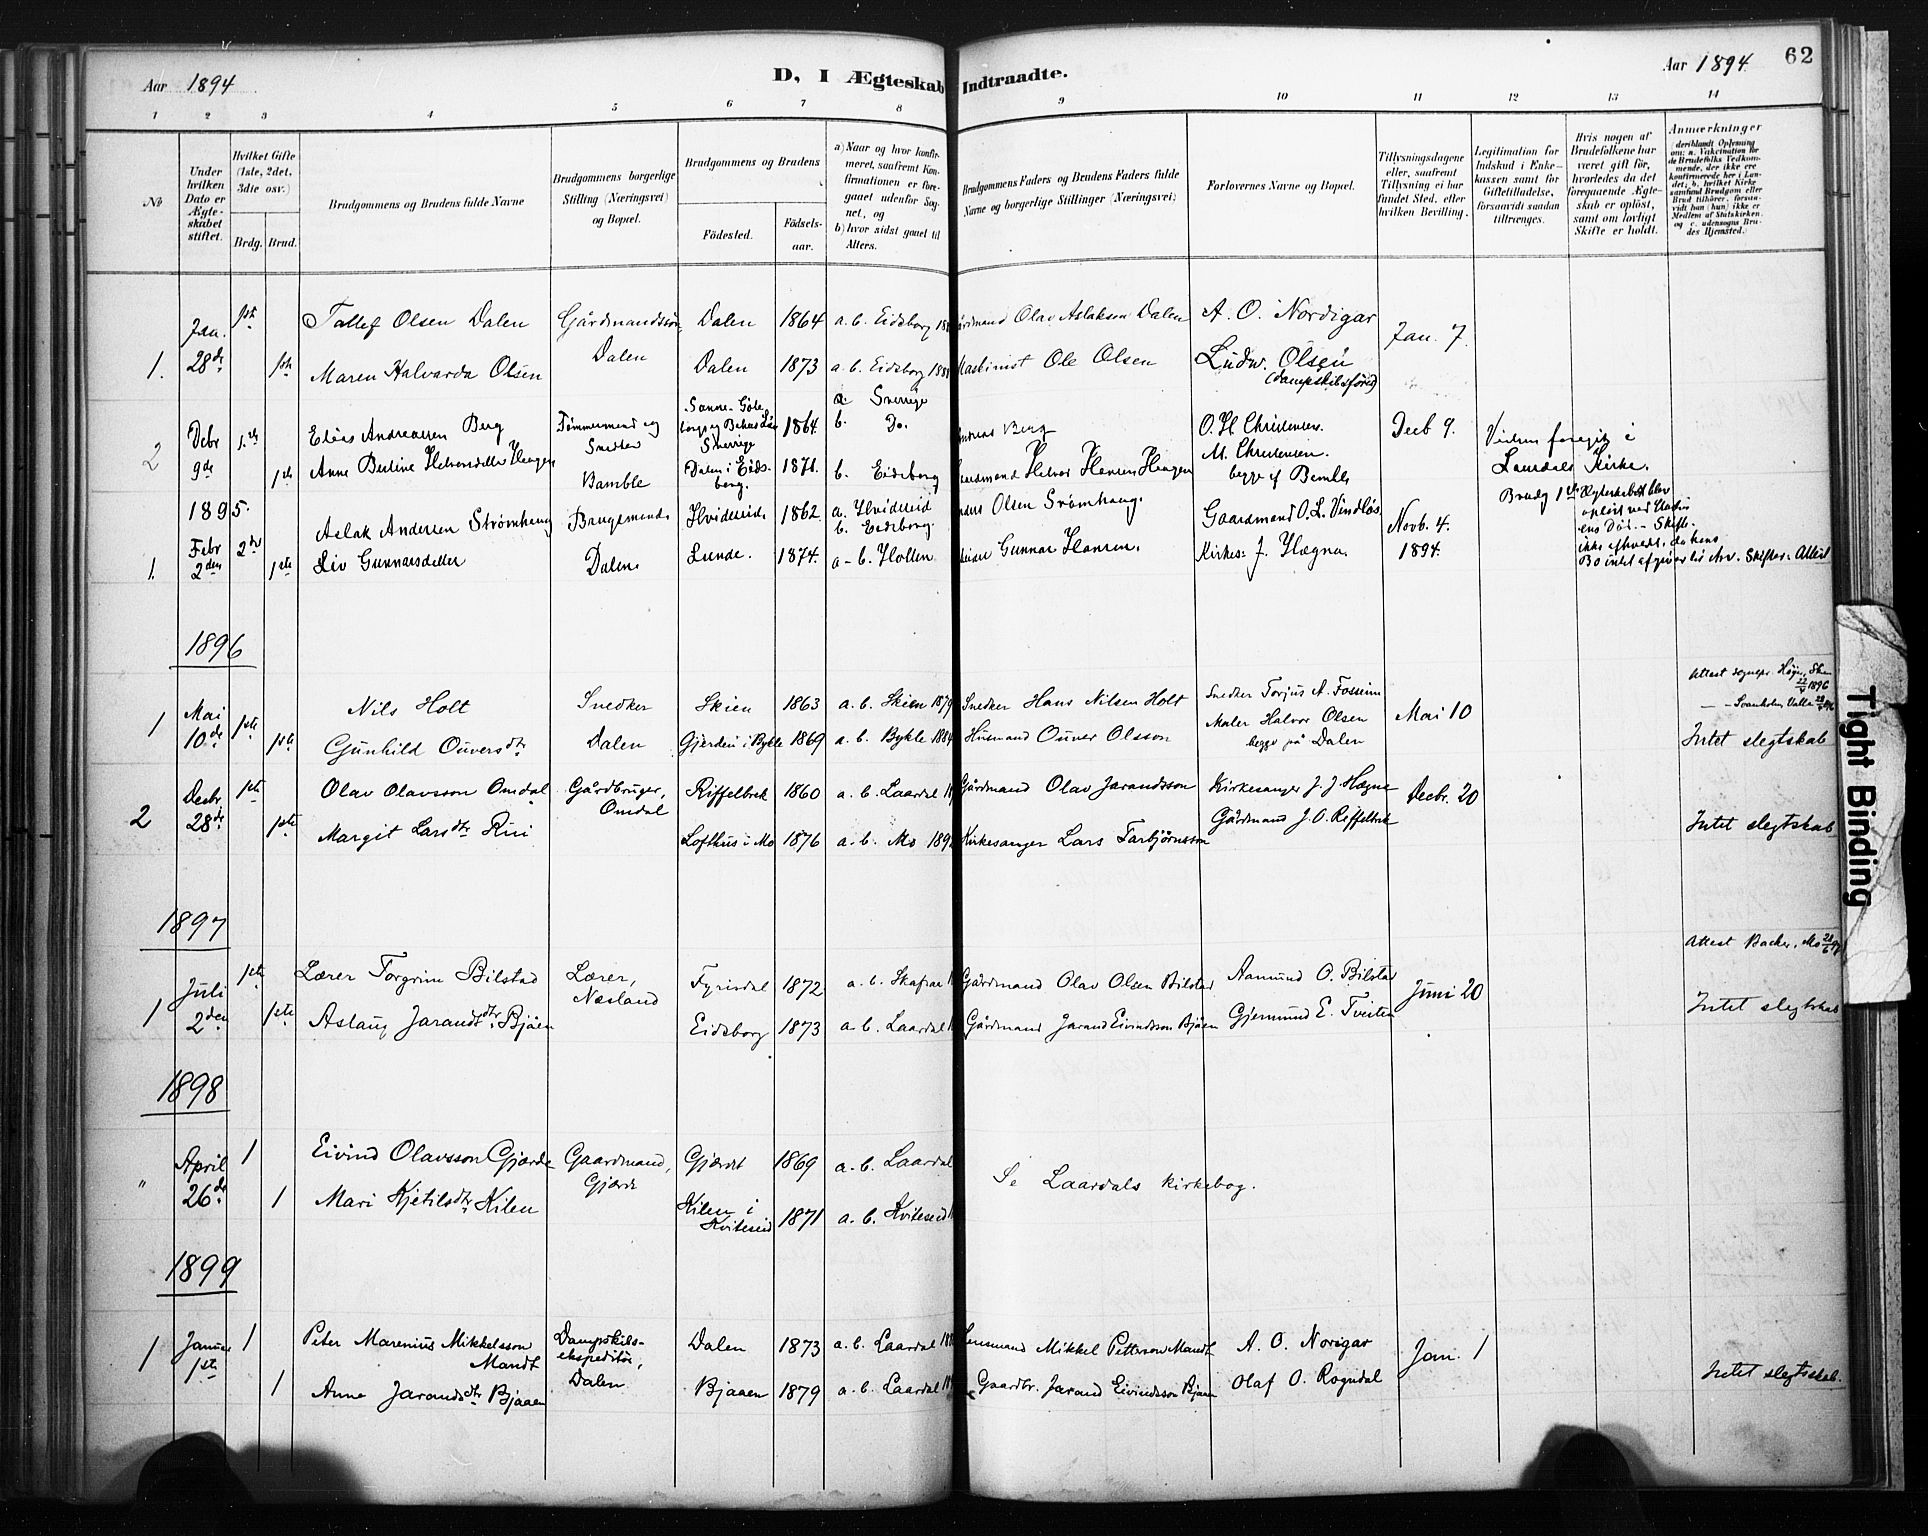 Aar 1894
D, I Ægteskab Indtraadte.
Aar 1894.
62
1 2 3 4 5 6 7 8 9 10 11 12 13 14
No
Under hvilken Dato er Ægteskabet stiftet.
Hvilket Gifte (1ste, 2det, 3die osv.)
Brdg. Brud.
Brudgommens og Brudens fulde Navne
Brudgommens borgerlige Stilling (Næringsvei) og Bopæl.
Brudgommens og Brudens
Fødested.
Fødselsaar.
a) Naar og hvor konfirmeret, saafremt Konfirmationen er foregaaet udenfor Sognet, og
b) hvor sidst gaaet til Alters.
Brudgommens Faders og Brudens Faders fulde Navne og borgerlige Stillinger (Næringsvei)
Forlovernes Navne og Bopæl.
Tillysningsdagene eller, saafremt Tillysning ei har fundet Sted, efter hvilken Bevilling.
Legitimation for Indskud i Enkekassen samt for Giftetilladelse, forsaavidt saadan tiltrænges.
Hvis nogen af Brudefolkene har været gift før, hvorledes da det foregaaende Ægteskab er opløst, samt om lovligt Skifte er holdt.
Anmerkninger (deriblandt Oplysning om: a. Vakcination for de Brudefolks Vedkommende, der ikke ere konfirmerede her i Landet; b. hvilket Kirkesamfund Brudgom eller Brud tilhører, forsaavidt han (hun) ikke er Medlem af Statskirken, og c. udensogns Brudes Hjemsted.)
Jan. 1ste Tallef Olsen Dalen Gårdmandssøn Dalen 1864 a. b. Eidsborg Olav Aslaksen Dalen A. O. Nordigar Jan. 7.
1. 28de 1ste Maren Halvarda Olsen Dalen Dalen 1873 a. b. Eidsborg Maskinist Ole Olsen Ludw. Olsen
(dampskibsfører)
2 Debr 9de 1ste Elias Andreassen Berg Tømmermand og Snedker Sverrige 1864. a. Sverrige b. Do. Berg O. H. Christensen. Decb 9. Vielsen foregik i
1ste Anne Bertine Helvorsdatter Haugen Bamble Dalen i Eidsborg. 1871. b. Eidsborg Helvor Hansen Haugen M. Christensen. begge af Bamble Laurdals Kirke.
1895.
1. Febr 2den 2det Aslak Andersen Strømhaug Brugsmand Hvideseid. 1862. a. Hvideseid b. Eidsborg. Olsen Strømhaug. Gaardmand O. L. Vindlös Novb. 4. Brudg 1ste Ægteskabet blev
opløst ved Død. - Skifte
1ste Liv Gunnarsdatter Dalen. Lunde. 1874. a - b. Hollen Gunnar Hansen. Kirkes: J. Hægna. 1894. ikke
Attest
1896
Attest
1896
1 Mai 10de 1ste Nils Holt Snedker Skien 1863 a. b. Skien 1879 Snedker Hans Nilsen Holt Snedker Torjus A. Fossum Mai 10
1ste Gunhild Ouversdtr Dalen Gjerden i Bykle 1869 a. b. Bykle 1884 Husmand Ouver Olsson Maler Halvor Olsen
begge på Dalen
Intet slegtskab
2 Decbr. 28de 1ste Olav Olavsson Omdal Gårdbruger, Omdal Riffelbrek 1860 a. b. Laardal Gårdmand Olav Jarandsson Kirkesanger J. J. Hægne Decbr. 20
1ste Margit Larsdtr Rui Lofthus i Mo 1876 a. b. Mo Kirkesanger Lars Tarbjörnsson Gårdmand J. O. Riffelbrek Intet slegtskab
1897
Attest Backer, Mo
1 Juli 2den 1ste Lærer Torgrim Bilstad Lærer, Næsland Fyrisdal 1872 a. b. Skafsaa Gårdmand Olav Olsen Bilstad Aamund O. Bilstad Juni 20
1ste Aslaug Jarandsdtr Bjåen Eidsborg 1873 a. b. Laardal Gårdmand Jarand Eivindsson Bjåen Gjermund E. Tveiten Intet slegtskab
1898
" April 26de 1 Eivind Olavsson Gjærde Gaardmand, Gjærde Gjærde 1869 a. b. Laardal Se Laardals kirkebog.
1 Mari Kjetilsdtr Kilen Kilen i Kviteseid 1871 a. b. Kviteseid
1899
1 Januar 1ste 1 Peter Marenius Mikkelsson Mandt Dampskibsekspeditör, Dalen Dalen 1873 a. b. Laardal Lensmand Mikkel Petterson Mandt A. O. Norigar Jan. 1
1 Anne Jarandsdtr Bjaaen Bjaaen 1879 a. b. Laardal Gaardbr. Jarand Eivindsson Bjaaen Olaf O. Rogndal Intet slegtskab
Tight Binding